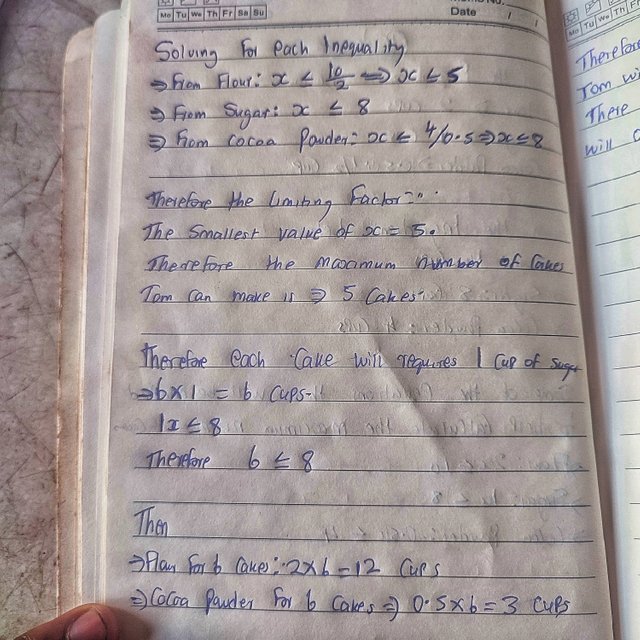 Mo Tu We Th Fr Sa Su
Date / /
Solving for each Inequality
⇒ From Flour: x ≤ 10/2 ⇒ x ≤ 5
⇒ From Sugar: x ≤ 8
⇒ From cocoa Powder: x ≤ 4/0.5 ⇒ x ≤ 8
Therefore the Limiting Factor:
The Smallest value of x = 5.
Therefore the maximum number of Cakes
Tom can make is ⇒ 5 Cakes
Therefore each Cake will requires 1 Cup of Sugar
⇒ 6 x 1 = 6 Cups
1x ≤ 8
Therefore 6 ≤ 8
Then
⇒ Flour For 6 Cakes: 2x6 = 12 Cups
⇒ Cocoa Powder For 6 Cakes ⇒ 0.5x6 = 3 Cups
Mo Tu We Th Fr
Therefore
Tom wi
There
will